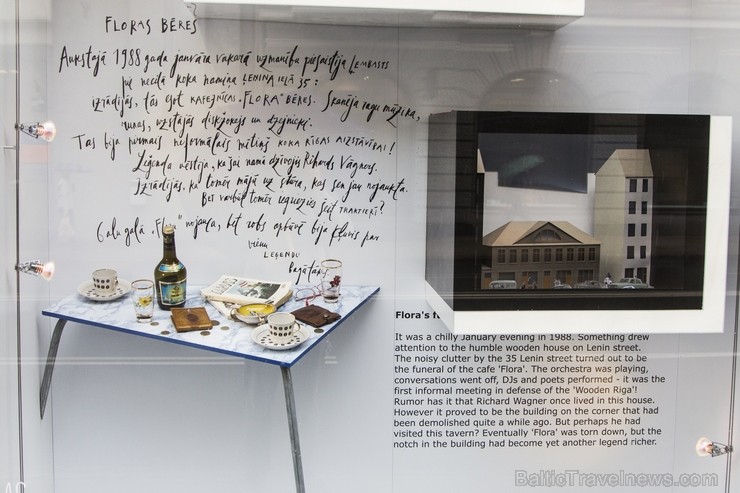 FLORAS BĒRES
Aukstajā 1988 gada janvāra vakarā uzmanību piesaistīja
pie necilā koka namiņa ĻEŅINA IELĀ 35:
izrādījās, tās esot KAFEJNĪCAS "FLORA" BĒRES. Skanēja mūzika,
runas, uzstājās diskžokeji un dzejnieki.
Tas bija pirmais neformālais mītiņš KOKA RĪGAS AIZSTĀVĪBAI!
Leģenda vēstīja, ka šai namā dzīvojis Rihards Vāgners.
Izrādījās, ka tomēr mājā uz stūra, kas sen jau nojaukta.
Bet varbūt tomēr iegriezies šeit TRAKTIERĪ?
Galu galā "Flora" nojauca, bet robs apbūvē bija kļuvis par
vienu
LEĢENDU
bagātāks
Flora's f
It was a chilly January evening in 1988. Something drew
attention to the humble wooden house on Lenin street.
The noisy clutter by the 35 Lenin street turned out to be
the funeral of the cafe 'Flora'. The orchestra was playing,
conversations went off, DJs and poets performed - it was the
first informal meeting in defense of the 'Wooden Riga'!
Rumor has it that Richard Wagner once lived in this house.
However it proved to be the building on the corner that had
been demolished quite a while ago. But perhaps he had
visited this tavern? Eventually 'Flora' was torn down, but the
notch in the building had become yet another legend richer.
BalticTravelnews.com